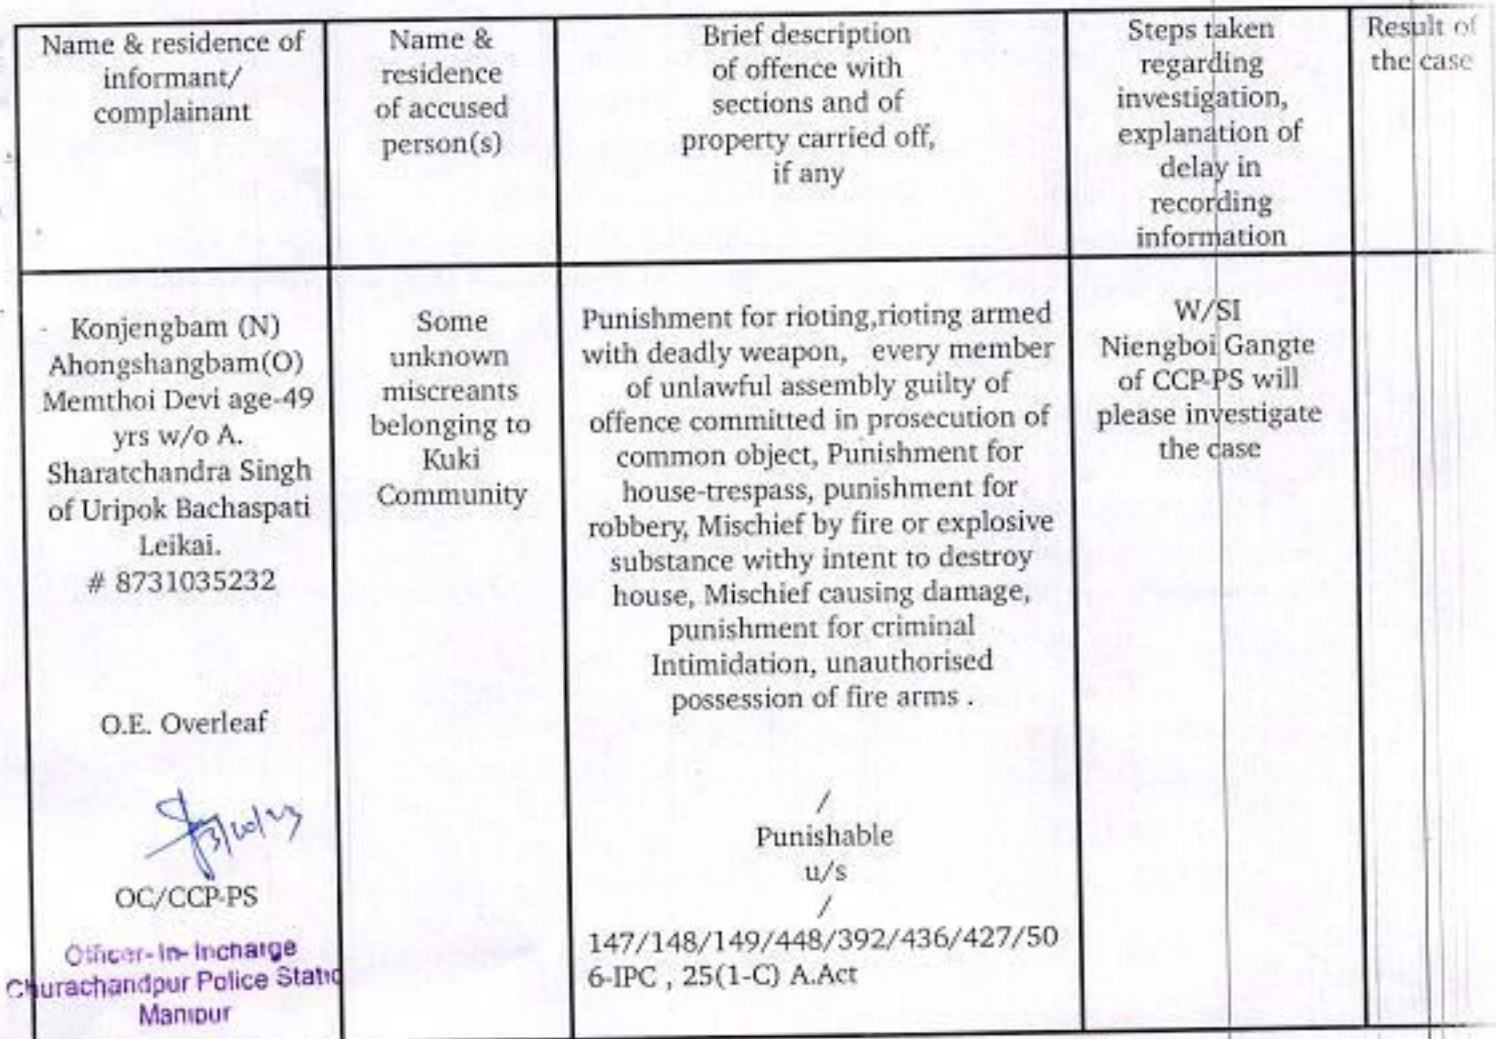 Name & residence of
informant/
complainant
Name &
residence
of accused
person(s)
Brief description
of offence with
sections and of
property carried off,
if any
Steps taken
regarding
investigation,
explanation of
delay in
recording
information
Result of
the case
Konjengbam (N)
Ahongshangbam(O)
Memthoi Devi age-49
yrs w/o A.
Sharatchandra Singh
of Uripok Bachaspati
Leikai.
# 8731035232
O.E. Overleaf
OC/CCP-PS
Officer-In-Incharge
Churachandpur Police Static
Manipur
Some
unknown
miscreants
belonging to
Kuki
Community
Punishment for rioting,rioting armed
with deadly weapon, every member
of unlawful assembly guilty of
offence committed in prosecution of
common object, Punishment for
house-trespass, punishment for
robbery, Mischief by fire or explosive
substance withy intent to destroy
house, Mischief causing damage,
punishment for criminal
Intimidation, unauthorised
possession of fire arms .
/
Punishable
u/s
/
147/148/149/448/392/436/427/50
6-IPC , 25(1-C) A.Act
W/SI
Niengboi Gangte
of CCP-PS will
please investigate
the case